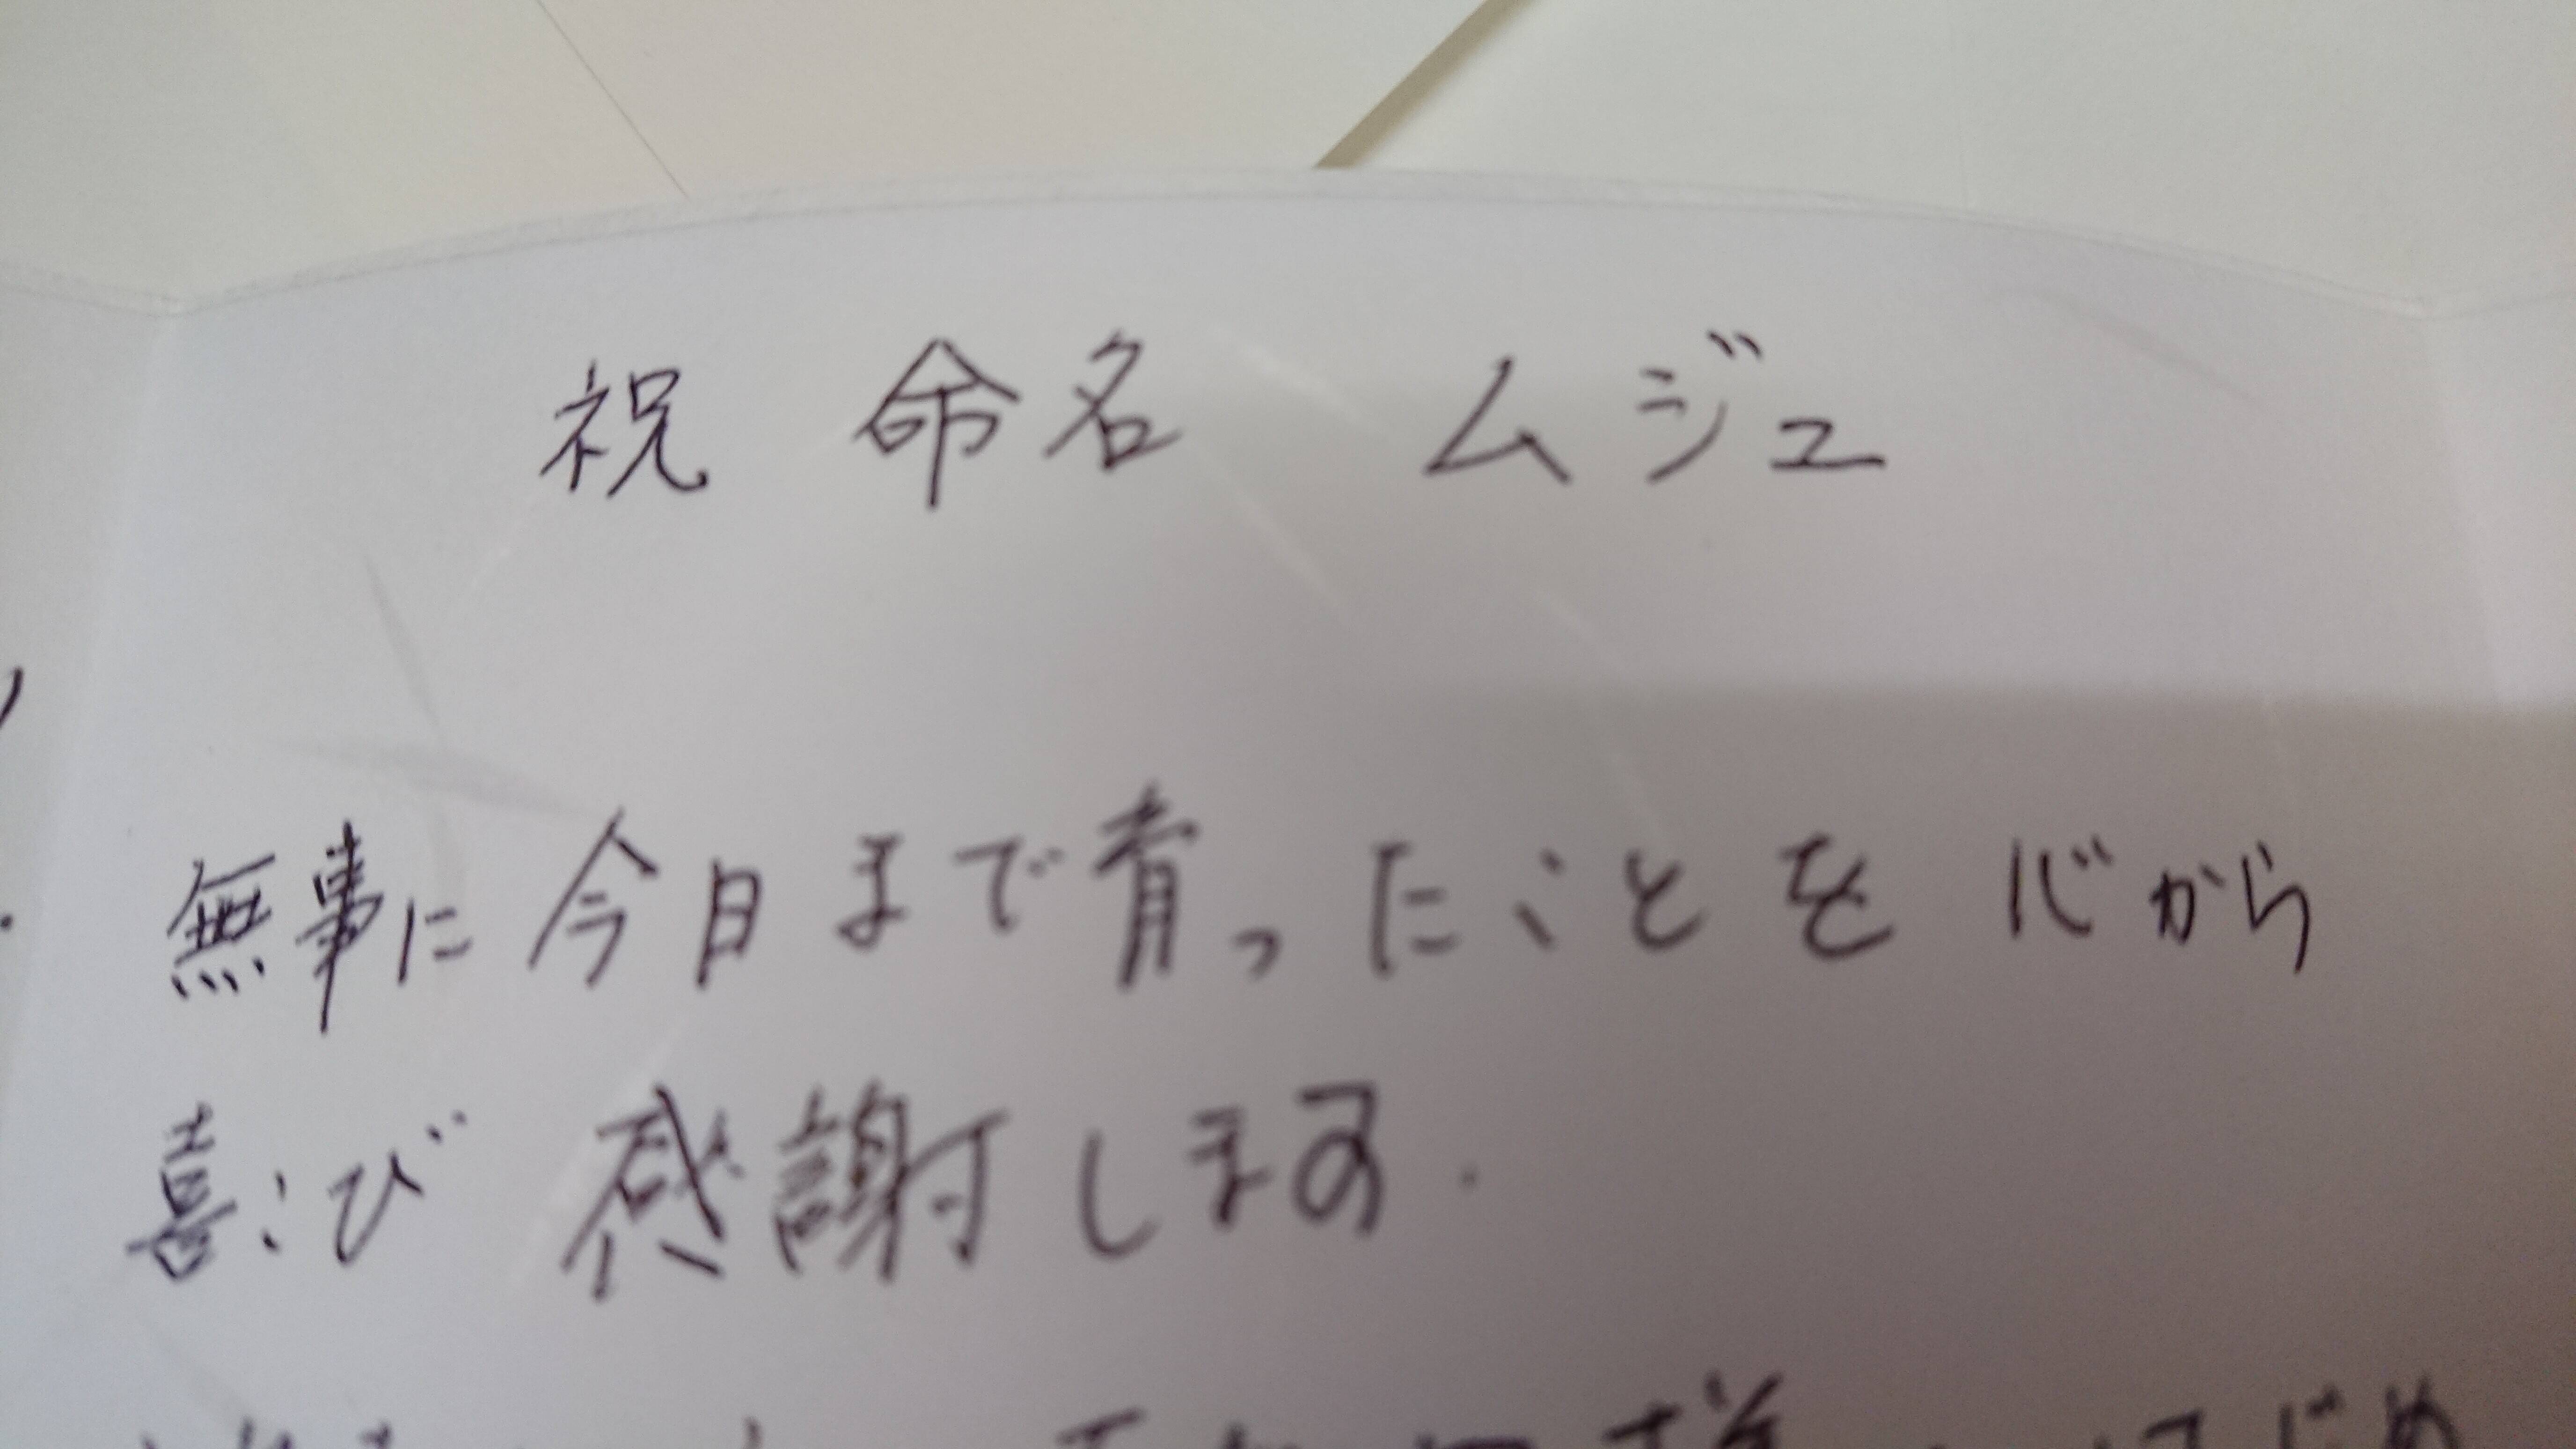 祝 命名 ムジュ
無事に今日まで育ったことを心から
喜こび 感謝します.